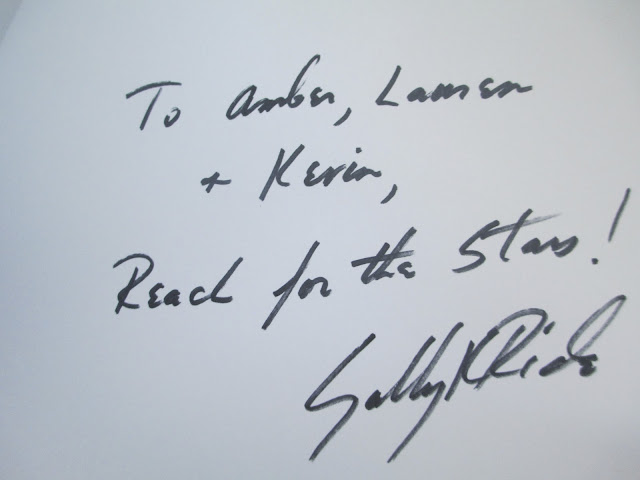 To Amber, Lauren
+ Kevin,
Reach for the Stars!
Sally K Ride